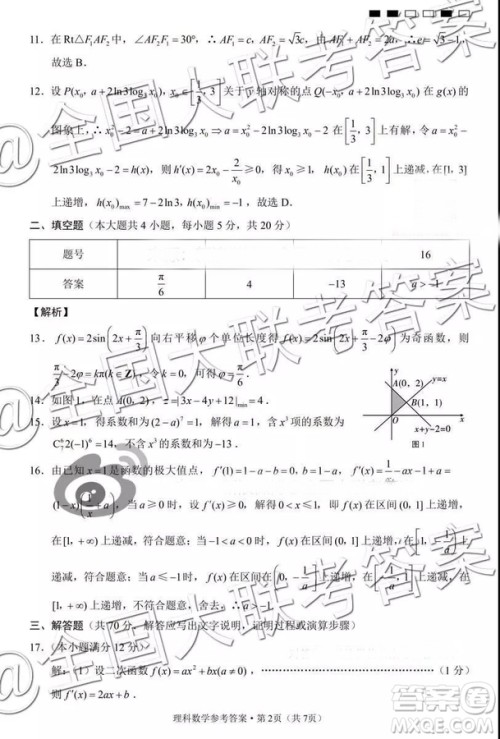 11. 在 Rt△F₁AF₂ 中，∠AF₂F₁ = 30°，∴ AF₁ = c，AF₂ = √3c，由 AF₁ + AF₂ = 2a，∴ e = √3 − 1，
故选 B.
12. 设 P(x₀, a + 2ln3log₃x₀)，x₀ ∈ [1/3, 3] 关于 y 轴对称的点 Q(−x₀, a + 2ln3log₃x₀) 在 g(x) 的
图象上，∴ x₀² − 2 = a + 2ln3log₃x₀ ⇒ a = x₀² − 2ln3log₃x₀ − 2 在 [1/3, 3] 上有解，令 a = x₀² −
2ln3log₃x₀ − 2 = h(x)，则 h′(x) = 2x₀ − 2/x₀ ≥ 0，得 h(x) 在 [1/3, 1] 上递减，在 [1, 3]
上递增，h(x₀)max = 7 − 2ln3，h(x₀)min = −1，故选 D.
二、填空题（本大题共 4 小题，每小题 5 分，共 20 分）
题号 16
答案 π/6 4 −13 a > −1
【解析】
13. f(x) = 2sin(2x + π/3) 向右平移 φ 个单位长度得 f(x) = 2sin(2x + π/3 − 2φ) 为奇函数，则
π/3 − 2φ = kπ(k∈Z)，令 k = 0，可得 φ = π/6.
14. 如图 1，在点 A(0, 2)，z = |3x − 4y + 12|min = 4.
15. 设 x = 1，得系数和为 (2 − a)⁷ = 1，解得 a = 1，含 x³ 项的系数为
C₇¹2(−1)⁶ = 14，不含 x³ 的系数和为 −13.
A(0, 2)
y=x
B(1, 1)
x+y−2=0
图 1
16. 由已知 x = 1 是函数的极大值点，f′(1) = 1 − a − b = 0，f′(x) = 1/x − ax − 1 + a =
(1 − x)(1/x + a)，当 a ≥ 0 时，设 f′(x) ≥ 0，解得 0 < x ≤ 1，即 f(x) 在区间 (0, 1] 上递增，
在 [1, +∞) 上递减，符合题意；当 −1 < a < 0 时，f(x) 在区间 (0, 1] 上递增，在 [1, −1/a] 上
递减，符合题意；当 a ≤ −1 时，f(x) 在区间
上递增，在
上递减，在
[1, +∞) 上递增，不符合题意，舍去. ∴ a > −1.
三、解答题（共 70 分. 解答应写出文字说明，证明过程或演算步骤）
17.（本小题满分 12 分）
解：(1) 设二次函数 f(x) = ax² + bx(a ≠ 0)，……（1 分）
则 f′(x) = 2ax + b.
理科数学参考答案·第 2 页（共 7 页）
@全国大联考答案